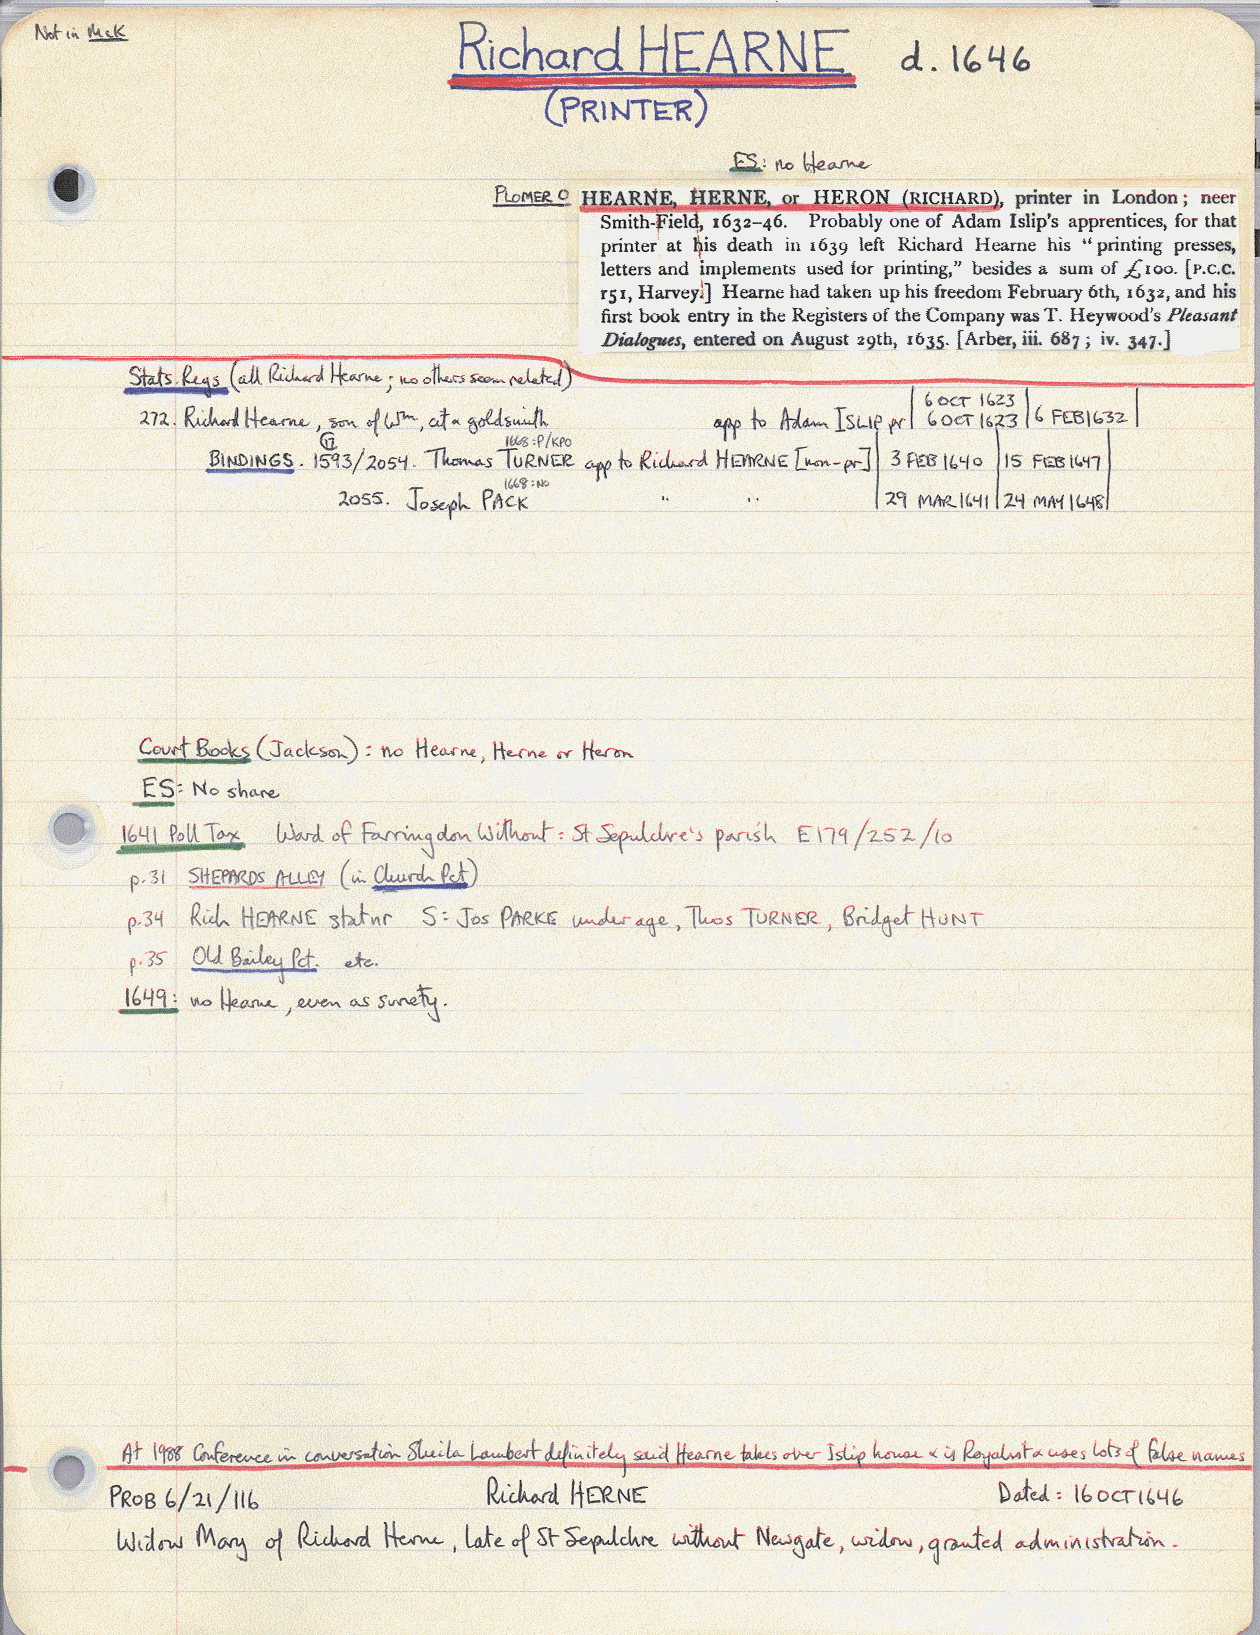 Not in McK
Richard HEARNE d. 1646
(PRINTER)
ES: no Hearne
PLOMER HEARNE, HERNE, or HERON (RICHARD), printer in London; neer
Smith-Field, 1632–46. Probably one of Adam Islip's apprentices, for that
printer at his death in 1639 left Richard Hearne his "printing presses,
letters and implements used for printing," besides a sum of £100. [P.C.C.
151, Harvey.] Hearne had taken up his freedom February 6th, 1632, and his
first book entry in the Registers of the Company was T. Heywood's Pleasant
Dialogues, entered on August 29th, 1635. [Arber, iii. 687; iv. 347.]
Stats. Regs (all Richard Hearne; no others seem related)
6 OCT 1623
272. Richard Hearne, son of Wm, cit & goldsmith app to Adam ISLIP pr 6 OCT 1623 6 FEB 1632
17 1668: P/KPO
BINDINGS. 1593/2054. Thomas TURNER app to Richard HEARNE [non-pr] 3 FEB 1640 15 FEB 1647
1668: NO
2055. Joseph PACK " " 29 MAR 1641 24 MAY 1648
Court Books (Jackson): no Hearne, Herne or Heron
ES: No share
1641 Poll Tax Ward of Farringdon Without: St Sepulchre's parish E179/252/10
p.31 SHEPARDS ALLEY (in Church Pct)
p.34 Rich HEARNE statnr S: Jos PARKE under age, Thos TURNER, Bridget HUNT
p.35 Old Bailey Pct. etc.
1649: no Hearne, even as surety.
At 1988 Conference in conversation Sheila Lambert definitely said Hearne takes over Islip house & is Royalist & uses lots of false names
PROB 6/21/116 Richard HERNE Dated: 16 OCT 1646
Widow Mary of Richard Herne, late of St Sepulchre without Newgate, widow, granted administration.